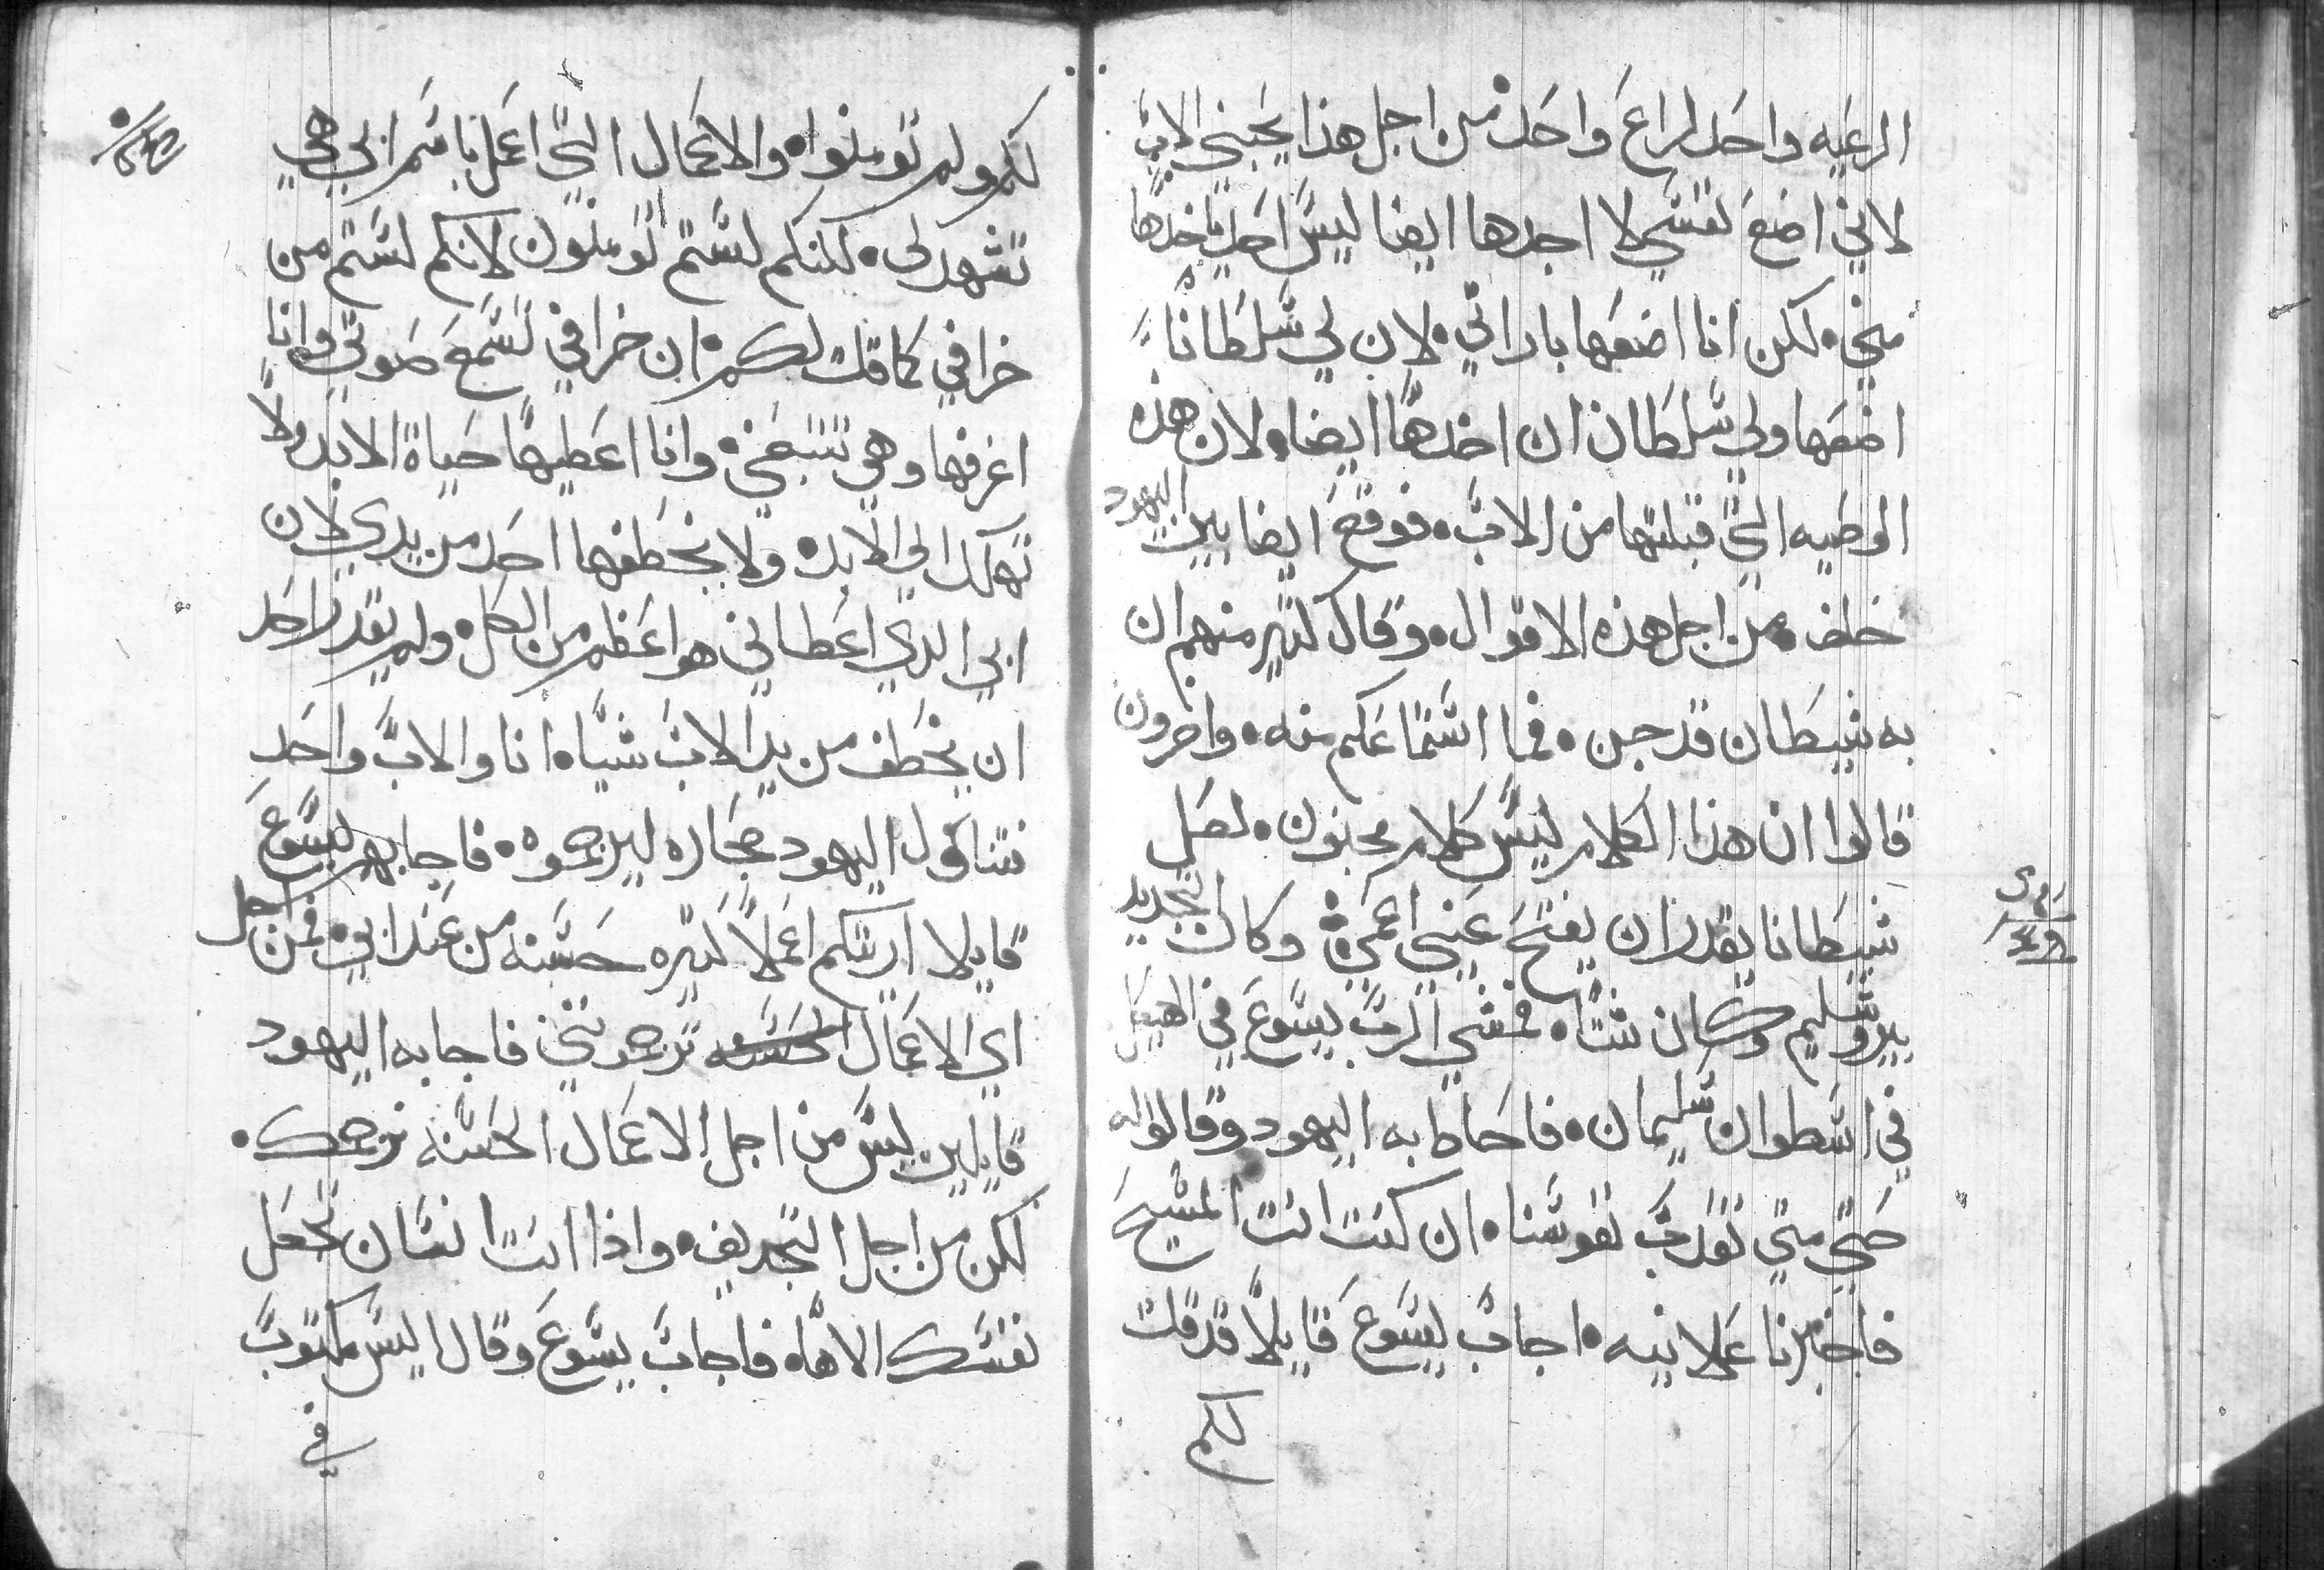 الرعيه واحد لراع واحد من اجل هذا يحبني الاب
لاني اضع نفسي لا اجدها ايضا ليس احد ياخدها
مني لكن انا اضعها باراتي لان لي سلطانا
اضعها ولي سلطان ان اخدها ايضا لان هذه
الوصيه التي قبلتها من الاب فوقع ايضا بين اليهود
خلف من اجل هذه الاقوال وقال كتير منهم ان
به شيطان قد جن فما استماعكم منه واخرون
قالوا ان هذا الكلام ليس كلام مجنون لعل
شيطانا يقدر ان يفتح عيني اعمي وكان التجديد
بيروشليم وكان شتا فمشي الرب يسوع في الهيكل
في اسطوان سليمان فاحاط به اليهود وقالوا له
حتي متي تعدب نفوسنا ان كنت انت المسيح
فاخبرنا علانيه اجاب يسوع قايلا قد قلت
لكم
لكم ولم تومنوا والاعمال التي اعمل باسم ابي هي
تشهد لي لكنكم لستم تومنون لانكم لستم من
خرافي كما قلت لكم ان خرافي تسمع صوتي وانا
اعرفها وهي تتبعني وانا اعطيها حياة الابد ولا
تهلك الي الابد ولا يخطفها احد من يدي لان
ابي الدي اعطاني هو اعظم من الكل ولم يقدر احد
ان يخطف من يد الاب شيا انا والاب واحد
فتناول اليهود حجاره ليرجموه فاجابهم يسوع
قايلا اريتكم اعمالا كتيره حسنه من عند ابي فمن اجل
اي الاعمال الحسنه ترجموني فاجابه اليهود
قايلين ليس من اجل الاعمال الحسنه نرجمك
لكن من اجل التجديف واذا انت انسان تجعل
نفسك الاها فاجاب يسوع وقال اليس مكتوب
في